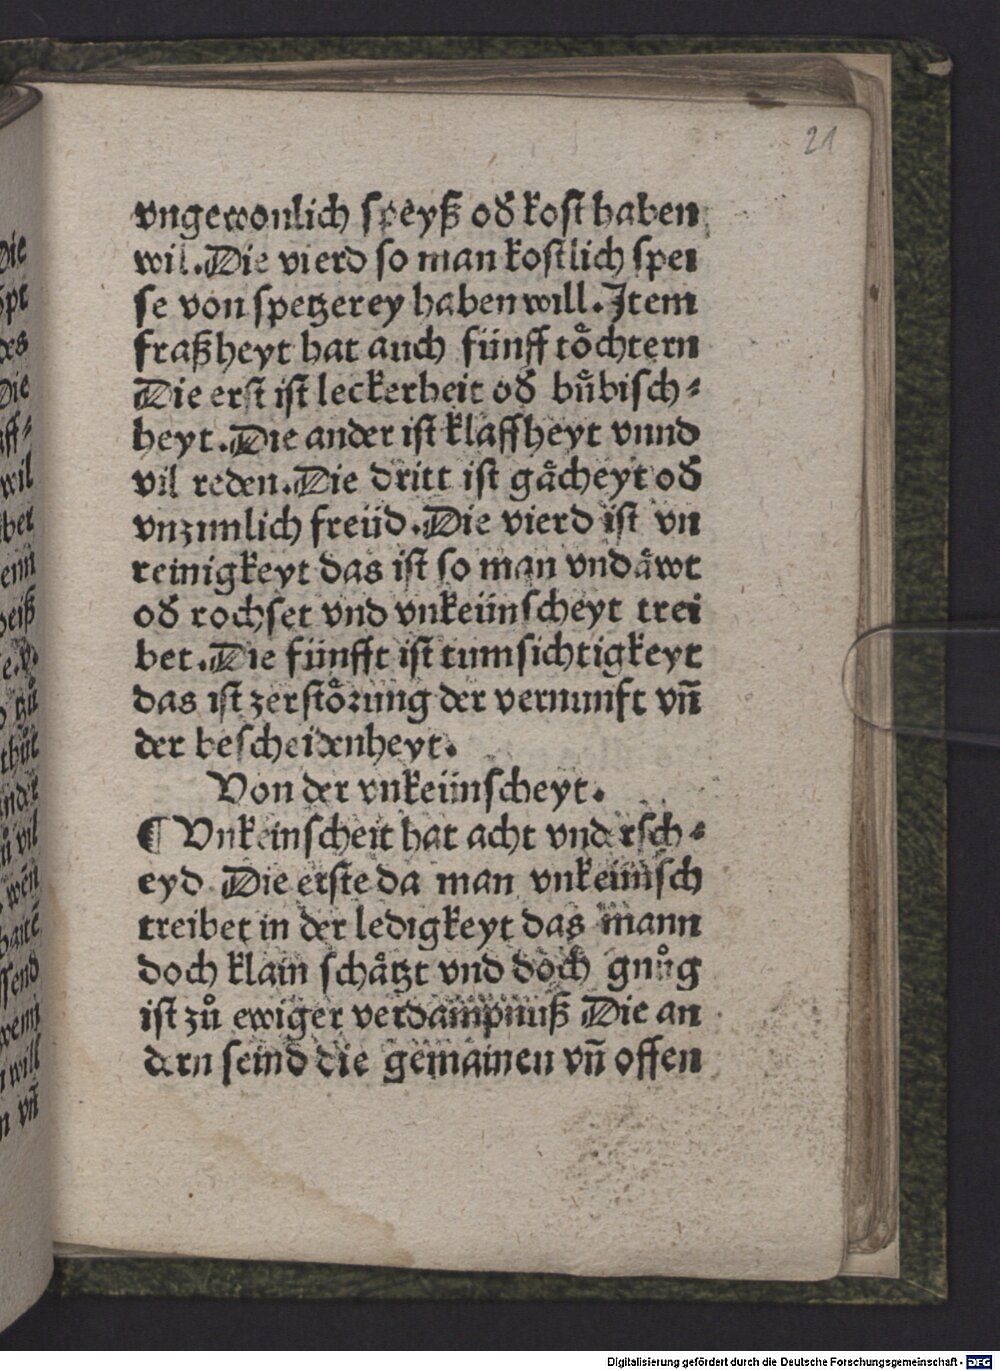 21
vngewonlich speyß od kost haben
wil. Die vierd so man kostlich spei
se von spetzerey haben will. Item
fraßheyt hat auch fünff toͤchtern
Die erst ist leckerheit od buͤbisch-
heyt. Die ander ist klaffheyt vnnd
vil reden. Die dritt ist gaͤcheyt od
vnzimlich freüd. Die vierd ist vn
reinigkeyt das ist so man vndaͤwt
od rochset vnd vnkeünscheyt trei
bet. Die fünfft ist tumsichtigkeyt
das ist zerstoͤrung der vernunft vn̄
der bescheidenheyt.
Von der vnkeünscheyt.
¶ Vnkeinscheit hat acht vndersch-
eyd Die erste da man vnkeünsch
treibet in der ledigkeyt das mann
doch klain schaͤtzt vnd doch gnuͦg
ist zuͦ ewiger verdampnuß Die an
dern seind die gemainen vn̄ offen
Digitalisierung gefördert durch die Deutsche Forschungsgemeinschaft - DFG